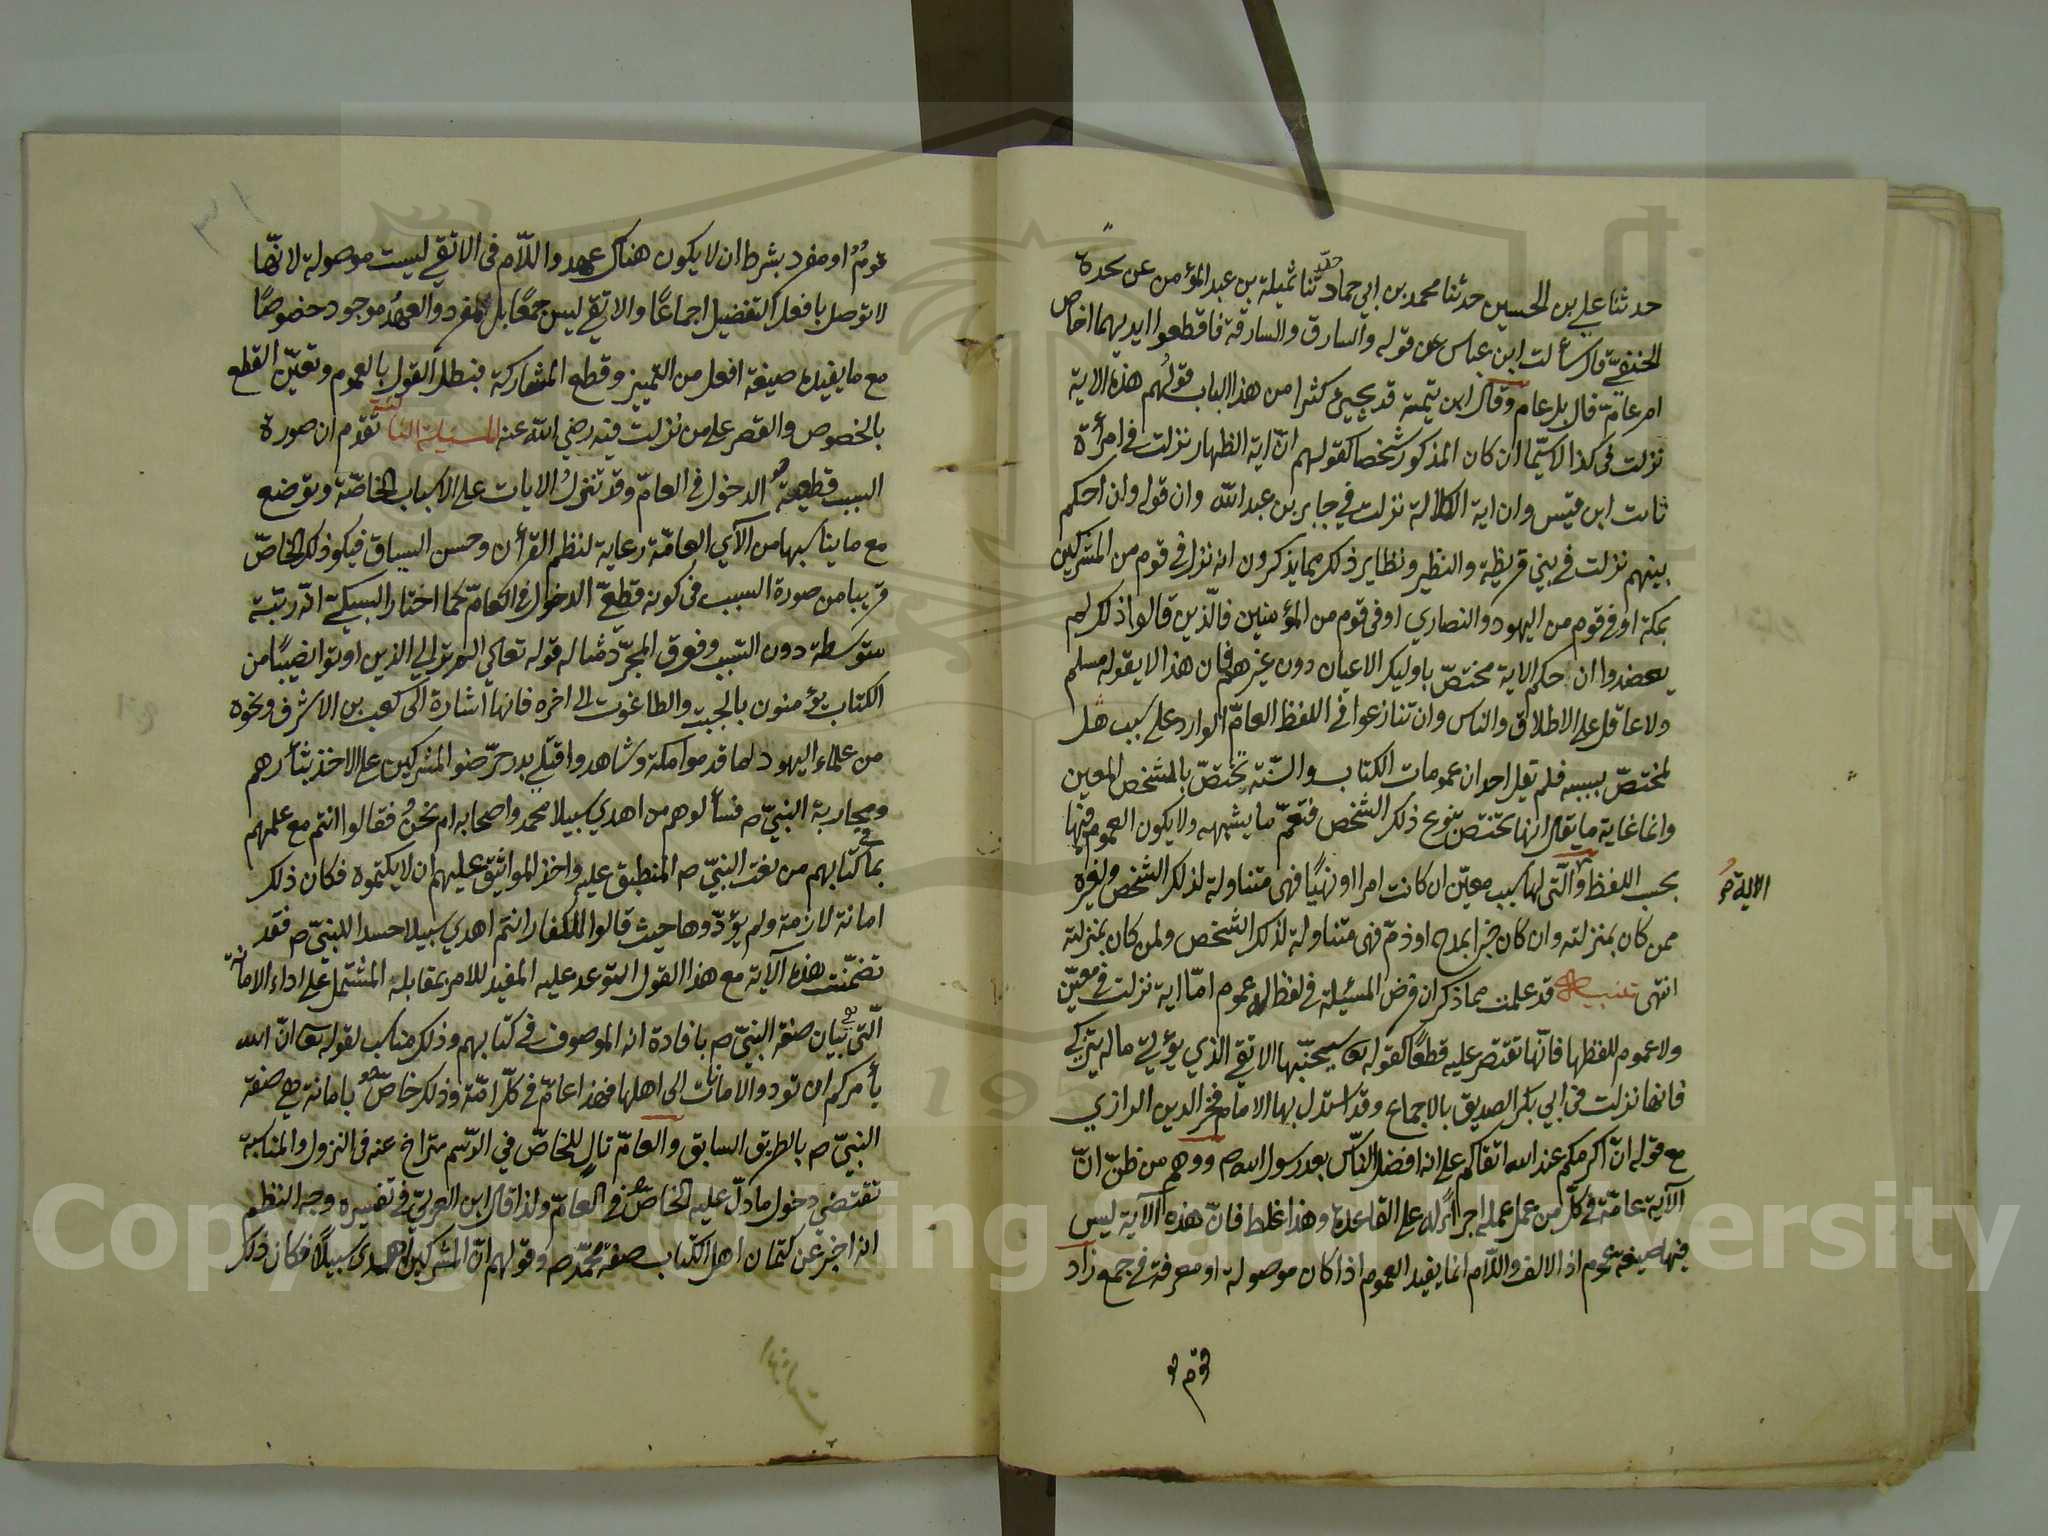 حدثنا علي بن الحسين حدثنا محمد بن ابي حماد ثنا ثميلة بن عبد المؤمن عن نجدة
الحنفي قال سألت ابن عباس عن قوله والسارق والسارقة فاقطعوا ايديهما اخاص
ام عام قال بل عام وقال ابن تيمية قد يجيئ كثيرا من هذا الباب قولهم هذه الاية
نزلت في كذا لاسيما ان كان المذكور شخصا كقولهم ان اية الظهار نزلت في امرأة
ثابت ابن قيس وان اية الكلالة نزلت في جابر بن عبد الله وان قوله وان احكم
بينهم نزلت في بني قريظة والنظير ونظاير ذلك مما يذكرون انه نزل في قوم من المشركين
بمكة او في قوم من اليهود والنصاري او في قوم من المؤمنين فالذين قالوا ذلك لم
يقصدوا ان حكم الاية مختص باوليك الاعيان دون غيرهم فان هذا لا يقوله مسلم
ولا عاقل على الاطلاق والناس وان تنازعوا في اللفظ العام الوارد على سبب هل
يختص بسببه فلم يقل احد ان عمومات الكتاب والسنة تختص بالشخص المعين
وانما غاية ما يقال انها تختص بنوع ذلك الشخص فتعم ما يشبهه ولا يكون العموم فيها
بحسب اللفظ والتى لها سبب معين ان كانت امرا او نهيا فهى متناولة لذلك الشخص ولغيره
الاية
ممن كان بمنزلته وان كان خبرا بمدح او ذم فهى متناولة لذلك الشخص ولمن كان بمنزلته
انتهى تنبيه قد علمت مما ذكر ان فرض المسئلة في لفظ له عموم اما اية نزلت في معين
ولا عموم للفظها فانها تقتصر عليه قطعا كقوله تعا سيجنبها الاتقي الذي يؤتي ماله يتزكى
فانها نزلت في ابي بكر الصديق بالاجماع وقد استدل بها الامام فخر الدين الرازي
مع قوله ان اكرمكم عند الله اتقاكم على انه افضل الناس بعد رسول الله ص ووهم من ظن ان
الآية عامة في كل من عمل عمله اجراء له على القاعدة وهذا غلط فان هذه الآية ليس
فيها صيغة عموم اذ الالف واللام انما يفيد العموم اذا كان موصولة او معرفة في جمع زاد
قوم
قوم او مفرد بشرط ان لا يكون هناك عهد واللام في الاتقي ليست موصولة لانها
لا توصل بافعل التفضيل اجماعا والاتقي ليس جمعا بل مفرد والعهد موجود خصوصا
مع ما يفيده صيغة افعل من التمييز وقطع المشاركة فبطل القول بالعموم وتعين القطع
بالخصوص والقصر على من نزلت فيه رضي الله عنه المسئلة الثالثة تقدم ان صورة
السبب قطعية الدخول في العام وقد تنزل الايات على الاسباب الخاصة وتوضع
مع ما يناسبها من الآي العامة رعاية لنظم القرآن وحسن السياق فيكون ذلك الخاص
قريبا من صورة السبب في كونه قطعي الدخول في العام كما اختار السبكي انه رتبة
متوسطة دون السبب وفوق المجرد مثاله قوله تعالي الم تر الي الذين اوتوا نصيبا من
الكتاب يؤمنون بالجبت والطاغوت الى اخره فانها اشارة الى كعب بن الاشرف ونحوه
من علماء اليهود لما قدموا مكة وشاهدوا قتلي بدر حرضوا المشركين على الاخذ بثأرهم
ومحاربة النبي ص فسألوهم من اهدي سبيلا محمد واصحابه ام نحن فقالوا انتم مع علمهم
بما في كتابهم من نعت النبي ص المنطبق عليه واخذ المواثيق عليهم ان لا يكتموه فكان ذلك
امانة لازمة ولم يؤدوها حيث قالوا للكفار انتم اهدي سبيلا حسدا للنبي ص فقد
تضمنت هذه الآية مع هذا القول التوعد عليه المفيد للامر بمقابله المشتمل على اداء الامانة
التي هي بيان صفة النبي ص بافادة انه الموصوف في كتابهم وذلك مناسب لقوله تعا ان الله
يأمركم ان تودوا الامانات الى اهلها فهذا عام في كل امانة وذلك خاص بامانة هي صفة
النبي ص بالطريق السابق والعام تال للخاص في الرسم متراخ عنه في النزول والمناسبة
تقتضي دخول ما دل عليه الخاص في العام ولذا قال ابن العربي في تفسيره وجه النظم
انه اخبر عن كتمان اهل الكتاب صفة محمد ص وقولهم ان المشركين اهدى سبيلا فكان ذلك
Copyright © King Saud University